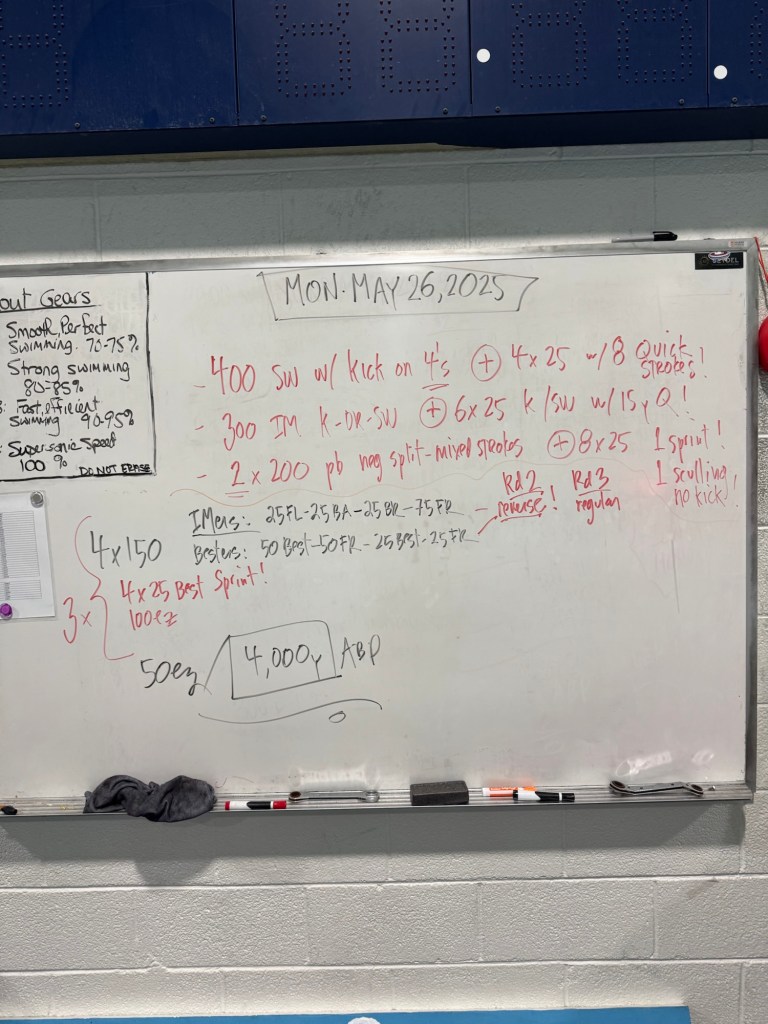 MON. MAY 26, 2025
out Gears
Smooth, Perfect
Swimming. 70-75%
Strong swimming
80-85%
: Fast, efficient
Swimming 90-95%
: Supersonic Speed
100 %
DO NOT ERASE
- 400 SW w/ Kick on 4's + 4 x 25 w/ 8 Quick Strokes!
- 300 IM K-DR-SW + 6 x 25 K/SW w/ 15y Q!
- 2 x 200 pb neg split-mixed strokes + 8 x 25 1 sprint!
1 sculling
no kick!
4 x 150
IMers: 25 FL-25 BA-25 BR-75 FR - Rd 2 reverse! Rd 3 regular
Besters: 50 Best-50 FR-25 Best-25 FR
3 x
4 x 25 Best Sprint!
100 ez
50 ez / 4,000y ABP